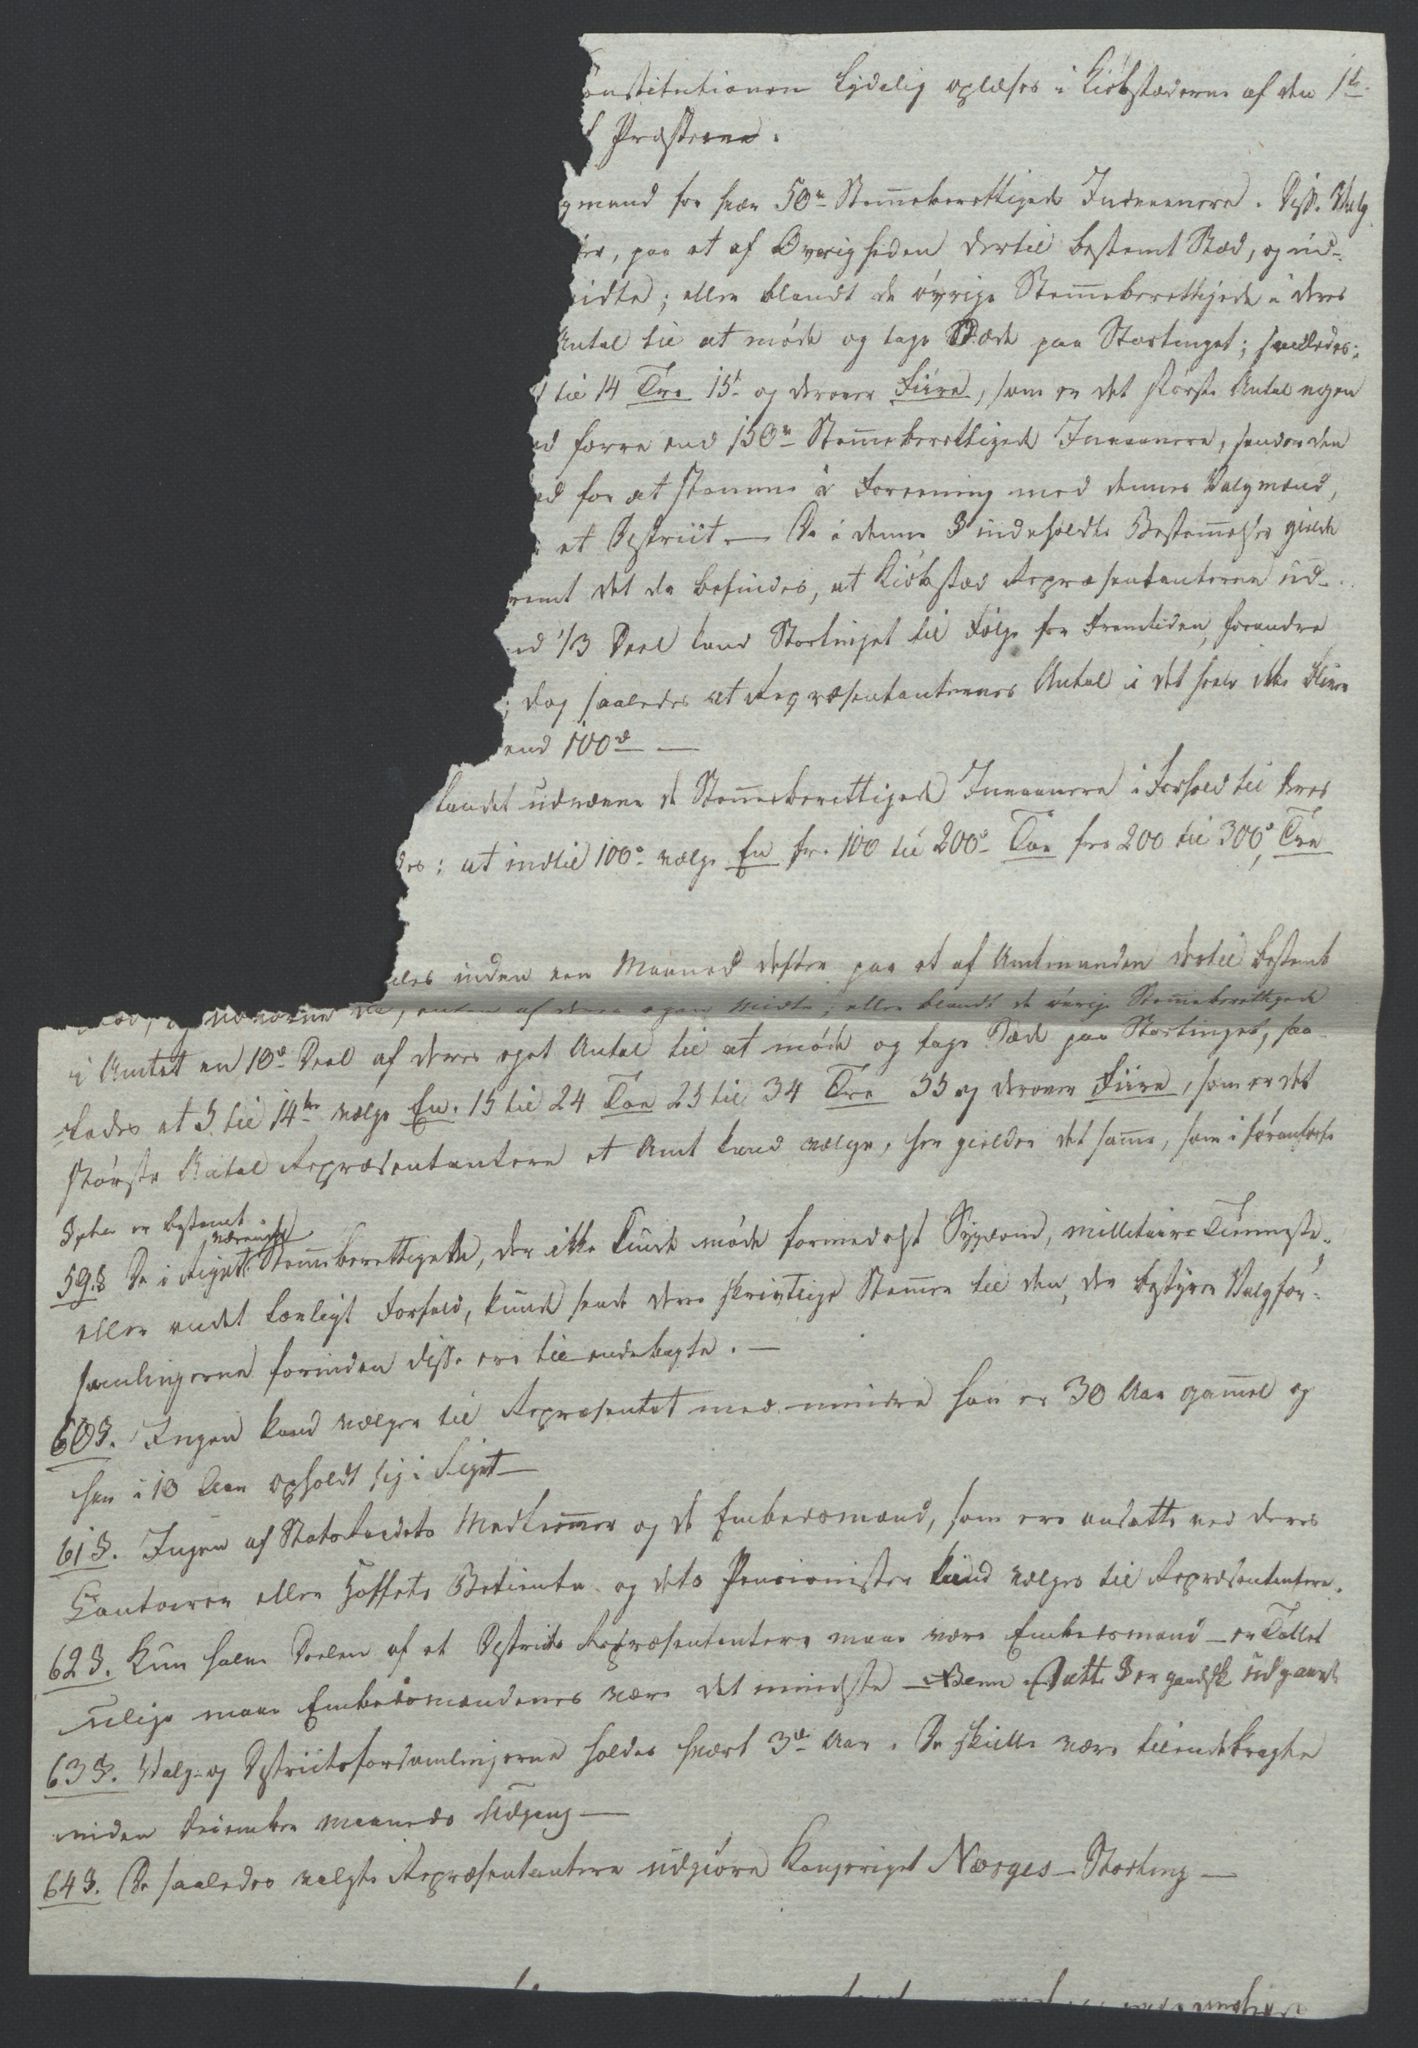 onstitutionen lydelig oplæses i Kiøbstæderne af den 1ste
f Præsterne.
gmand for hær 50de Stem̄eberettigede Indvaanere. Disse Valg
, paa et af Øvrigheden dertil bestemt Stæd, og ud-
idte; eller blandt de øvrige Stem̄eberettigede i deres
Antal til at møde og tage Sæde paa Stortinget; saaledes;
til 14 Tre 15 og derover Fiire, som er det største Antal nogen
d færre end 150de Stem̄eberettigede Indvaanere, sender den
ed for at stemme i Forening med dennes Valgmænd,
et District — De i denne § indeholdte Bestem̄elser gielde
remt det da befindes, at Kiøbstæd Repræsentanterne ud-
nd 1/3 Deel kand Stortinget til Følge for Fremtiden, forandre
; dog saaledes at Repræsentanternes Antal i det heele ikke bliver
end 100de —
Landet udnævne de Stem̄eberettigede Indvaanere i Forhold til deres
des; at indtil 100de vælge En fra 100 til 200de Toe fra 200 til 300de Tre
les inden een Maaned derefter paa et af Amtmanden dertil bestemt
og udnævne da, enten af deres egen Midte; eller blandt de øvrige Stem̄eberettigede
i Amtet en 10de Deel af deres eget Antal til at møde og tage Sæde paa Stortinget, saa-
ledes at 5 til 14ten vælge En. 15 til 24 Toe 25 til 34 Tre 35 og derover Fiire, som er det
største Antal Repræsentantere et Amt kand vælge, her gielder det samme, som i foranførte
§pher er bestemt.
59.§ De i Riget værende Stem̄eberettigede, der ikke kunde møde formedelst Sygdom, millitaire Tienneste,
eller andet lovligt Forfald, kunde sende deres skrivtlige Stem̄er til den, der bestyrer Valgfor-
samlingerne forinden disse ere tilendebragte. —
60§. Ingen kand vælges til Repræsentat med mindre han er 30 Aar gam̄el og
har i 10 Aar opholdt sig i Riget —
61§. Ingen af StatsRaadets Medlem̄er og de Embedsmænd, som ere ansatte ved deres
Contoirer eller Hoffets Betiente og dets Pensionister kand vælges til Repræsentantere.
62§. Kun halve Deelen af et Districts Repræsentantere maae være Embedsmænd — er Tallet
ulige maae Embedsmændenes være det mindste — Denne Dette § er gandsk udgaaet
63§. Valg- og Districtsforsamlingerne holdes hvært 3de Aar. De skulle være tilendebragte
inden December Maaneds Udgang —
64§. De saaledes valgte Repræsentantere udgiøre Kongeriget Norges — Storting —